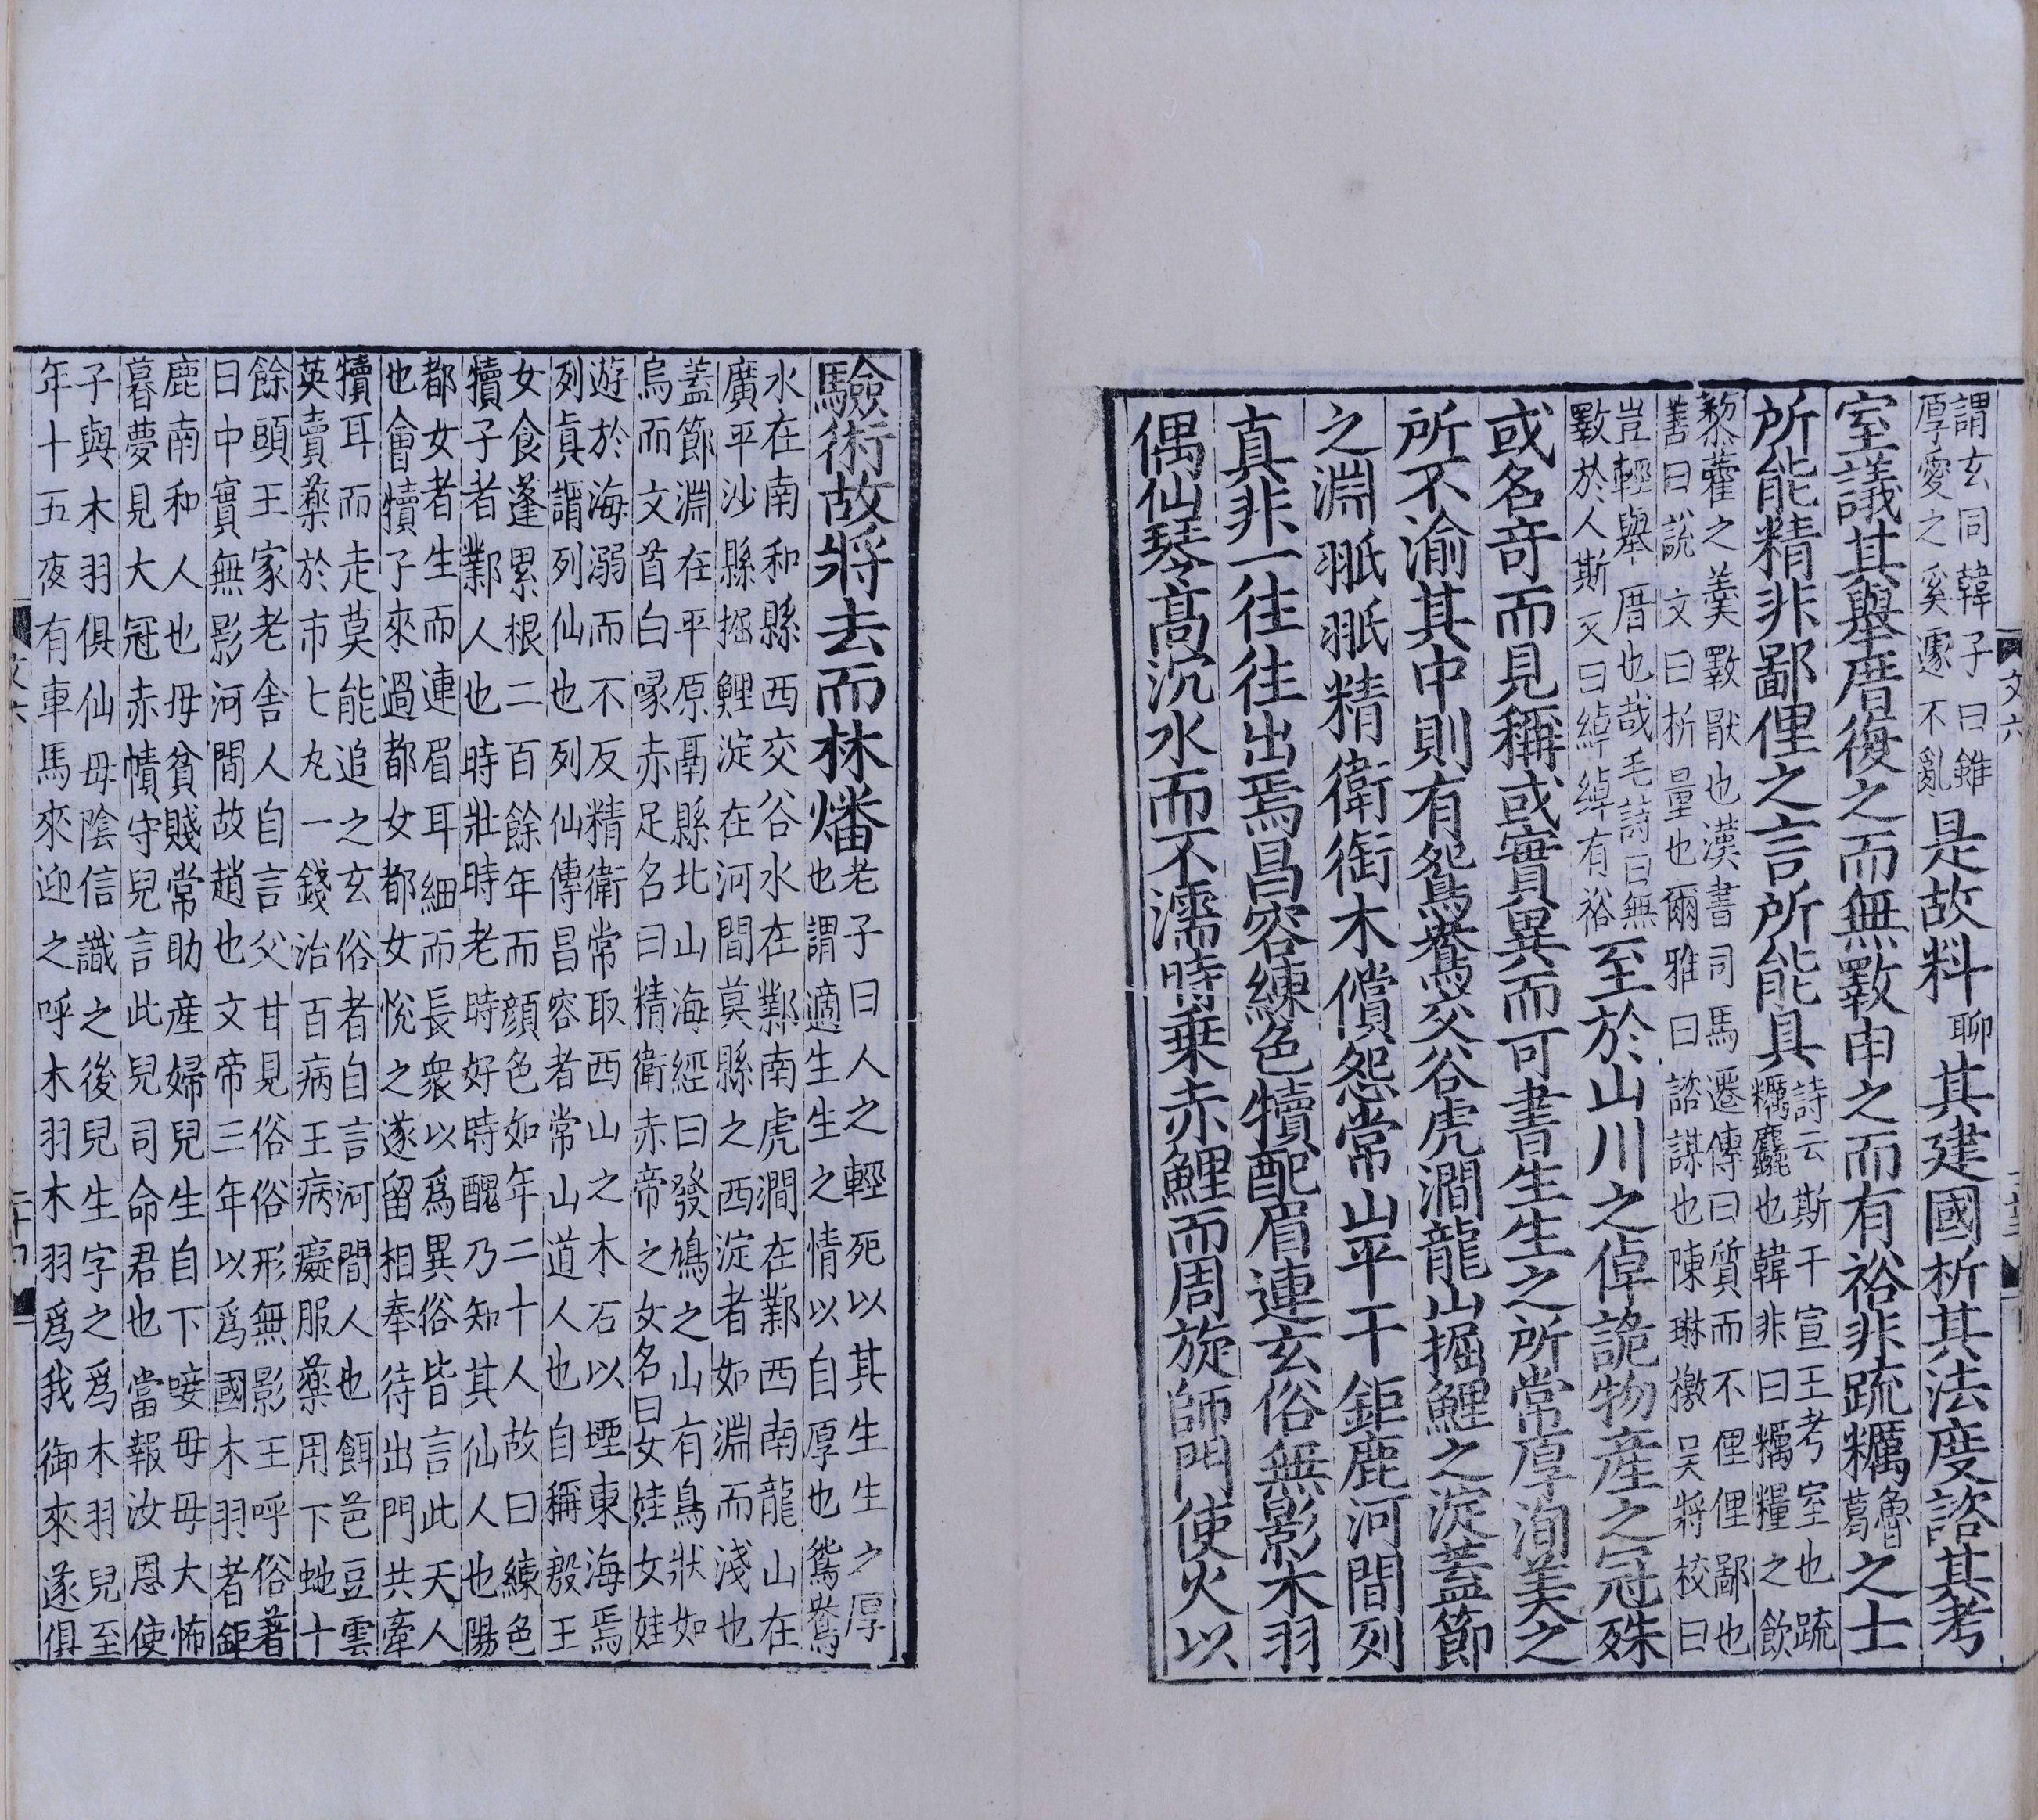 謂玄同韓子曰雖
厚愛之奚遽不亂是故料聊其建國析其法度諮其考
室議其舉厝復之而無斁申之而有裕非疏糲魯葛之士
所能精非鄙俚之言所能具詩云斯干宣王考室也疏
糲麤也韓非曰糲糧之飲
藜藿之羹斁猒也漢書司馬遷傳曰質而不俚俚鄙也
善曰說文曰析量也爾雅曰諮謀也陳琳檄吳將校曰
豈輕舉厝也哉毛詩曰無
斁於人斯又曰綽綽有裕至於山川之倬詭物産之冠殊
或名竒而見稱或實異而可書生生之所常厚洵美之
所不渝其中則有鴛鴦交谷虎澗龍山掘鯉之淀蓋節
之淵𦐊𦐊精衛銜木償怨常山平干鉅鹿河間列
真非一往往出焉昌容練色犢配眉連玄俗無影木羽
偶仙琴髙沉水而不濡時乗赤鯉而周旋師門使火以
文六
驗術故將去而林燔老子曰人之輕死以其生生之厚
也謂適生生之情以自厚也鴛鴦
水在南和縣西交谷水在鄴南虎澗在鄴西南龍山在
廣平沙縣掘鯉淀在河間莫縣之西淀者如淵而淺也
蓋節淵在平原鬲縣北山海經曰發鳩之山有鳥狀如
烏而文首白喙赤足名曰精衛赤帝之女名曰女娃女娃
遊於海溺而不反精衛常取西山之木石以堙東海焉
列真謂列仙也列仙傳昌容者常山道人也自稱殷王
女食蓬累根二百餘年而顔色如年二十人故曰練色
犢子者鄴人也時壯時老時好時醜乃知其仙人也陽
都女者生而連眉耳細而長衆以爲異俗皆言此天人
也會犢子來過都女都女悅之遂留相奉待出門共牽
犢耳而走莫能追之玄俗者自言河間人也餌芭豆雲
英賣藥於市七丸一錢治百病王病癡服藥用下虵十
餘頭王家老舍人自言父甘見俗俗形無影王呼俗著
日中實無影河間故趙也文帝三年以爲國木羽者鉅
鹿南和人也母貧賤常助産婦兒生自下唼母母大怖
暮夢見大冠赤幘守兒言此兒司命君也當報汝恩使
子與木羽俱仙母陰信識之後兒生字之爲木羽兒至
年十五夜有車馬來迎之呼木羽木羽爲我御來遂俱